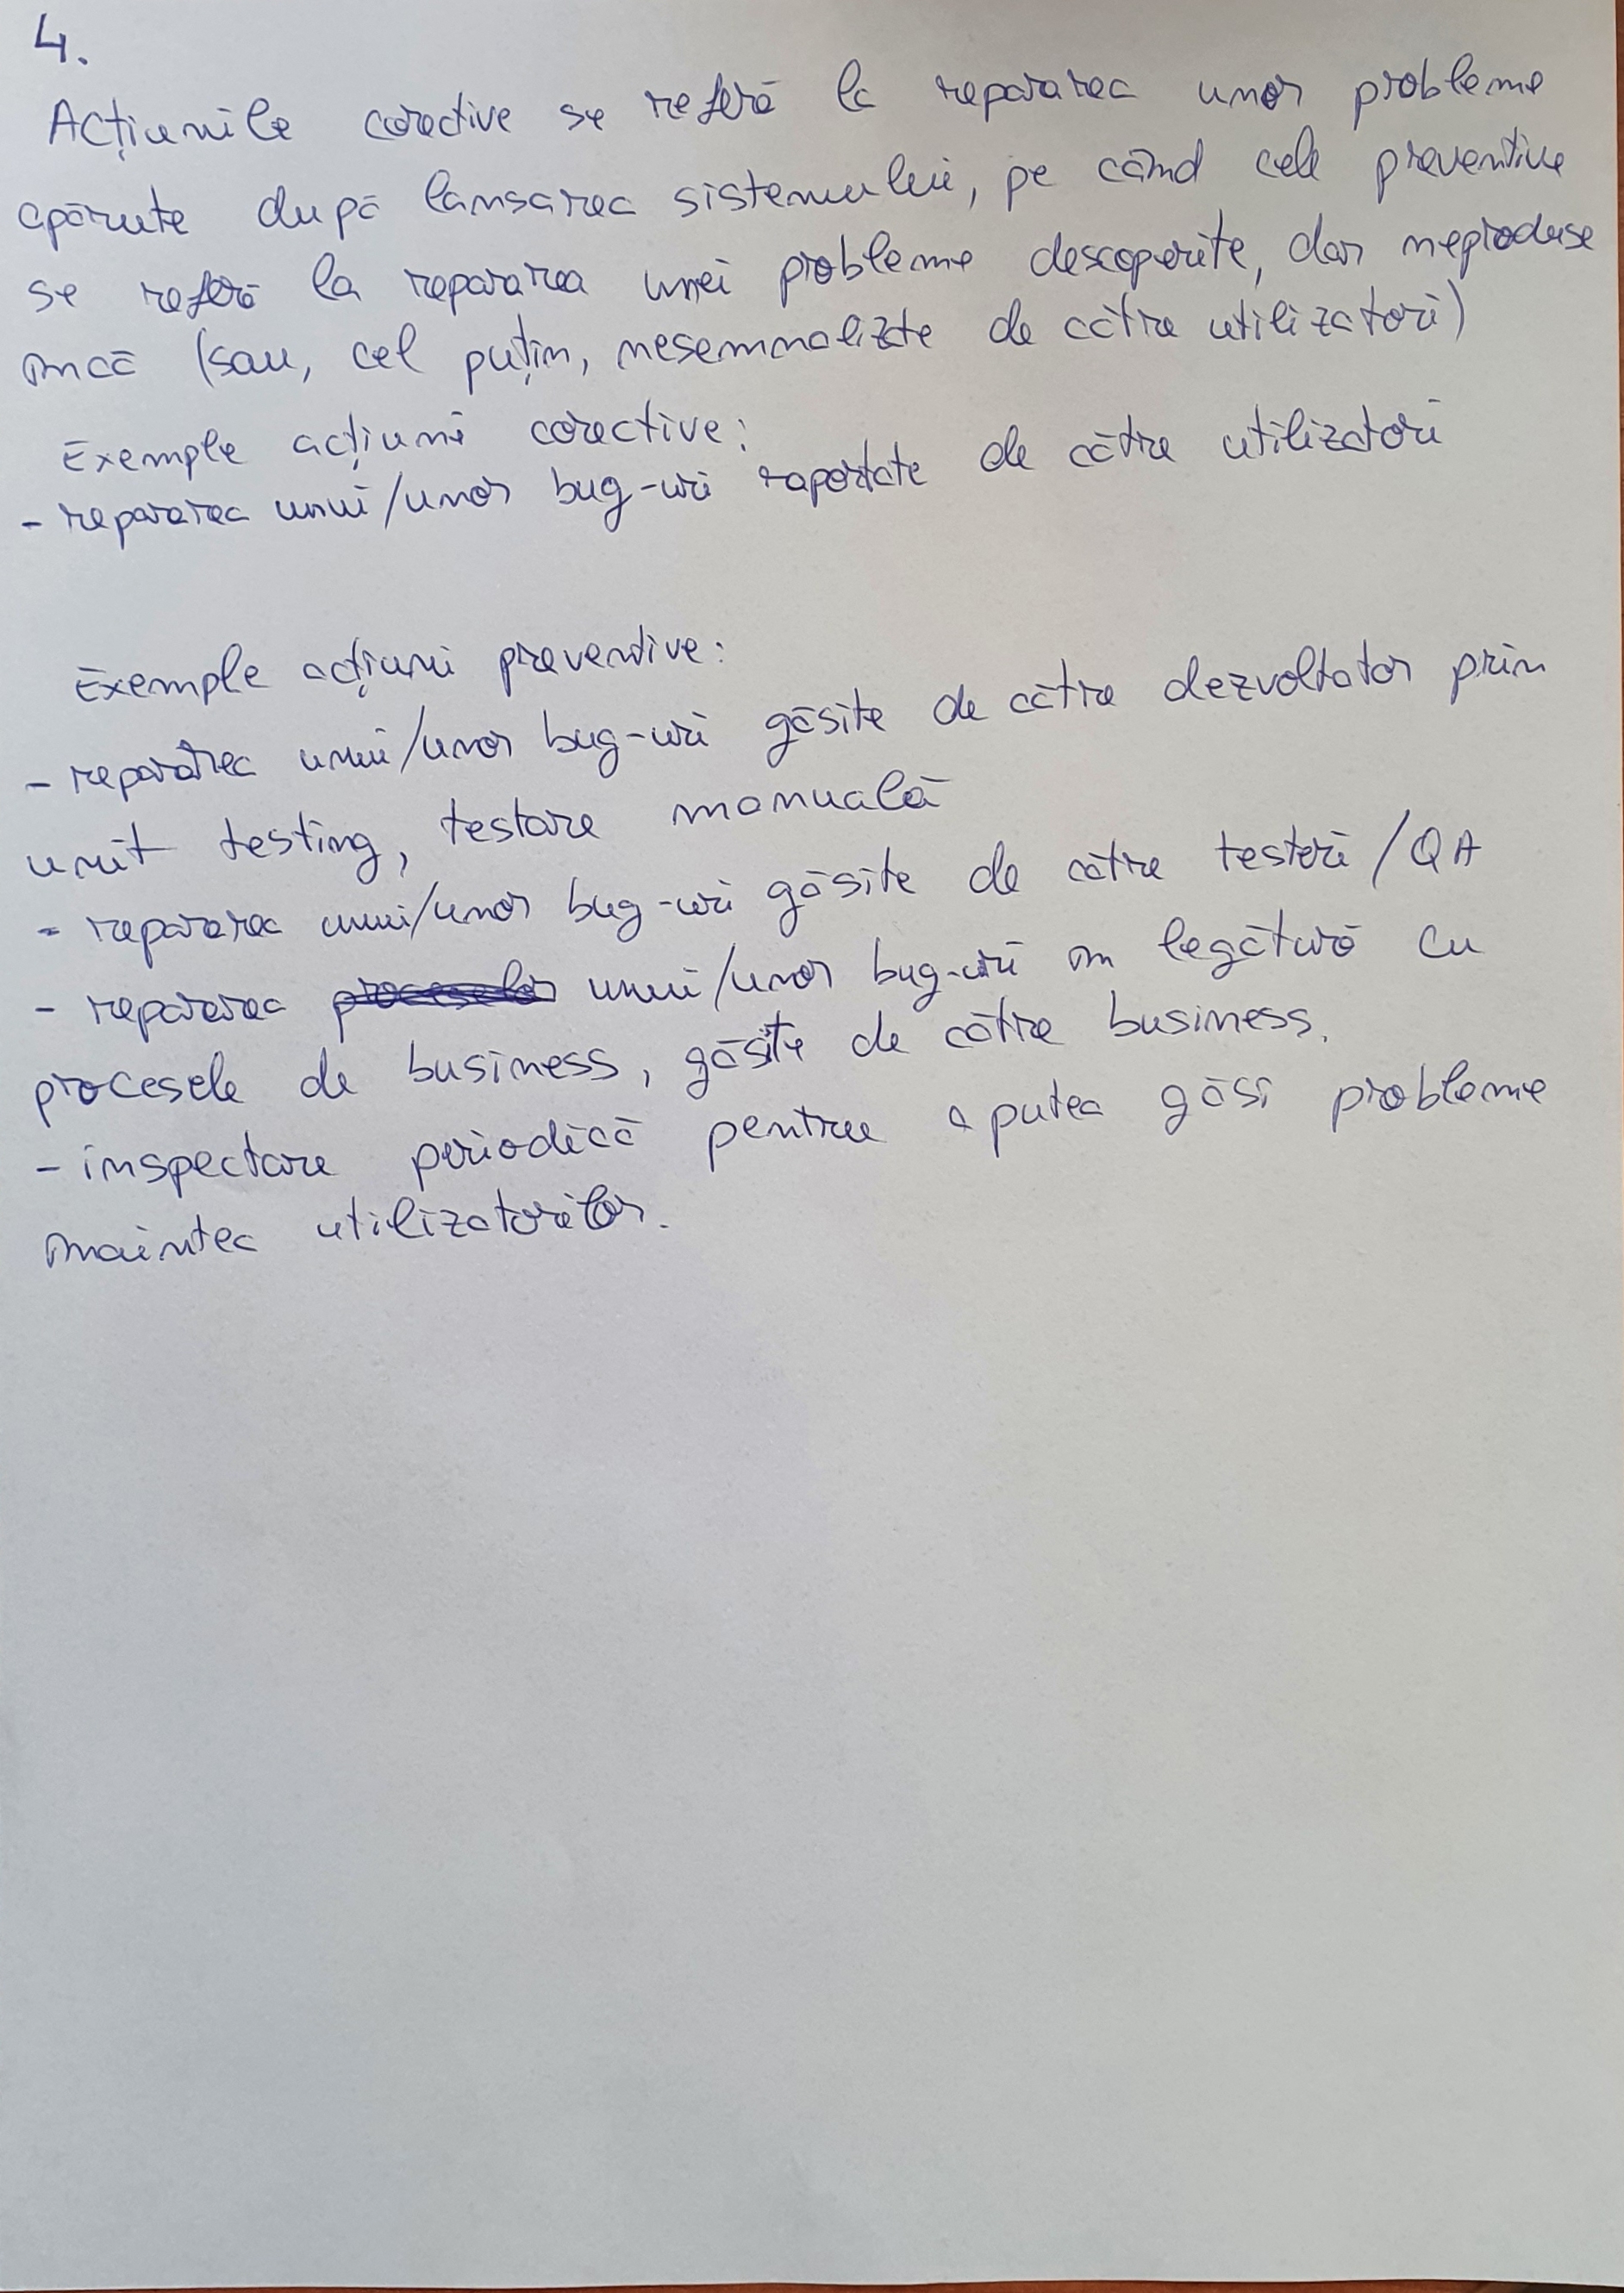 4.
Acțiunile corective se referă la repararea unor probleme
apărute după lansarea sistemului, pe când cele preventive
se referă la repararea unei probleme descoperite, dar neproduse
încă (sau, cel puțin, nesemnalizate de către utilizatori)
Exemple acțiuni corective:
- repararea unui/unor bug-uri raportate de către utilizatori
Exemple acțiuni preventive:
- repararea unui/unor bug-uri găsite de către dezvoltator prin
unit testing, testare manuală
- repararea unui/unor bug-uri găsite de către testeri/QA
- repararea unui/unor bug-uri în legătură cu
procesele de business, găsite de către business.
- inspectare periodică pentru a putea găsi probleme
înaintea utilizatorilor.